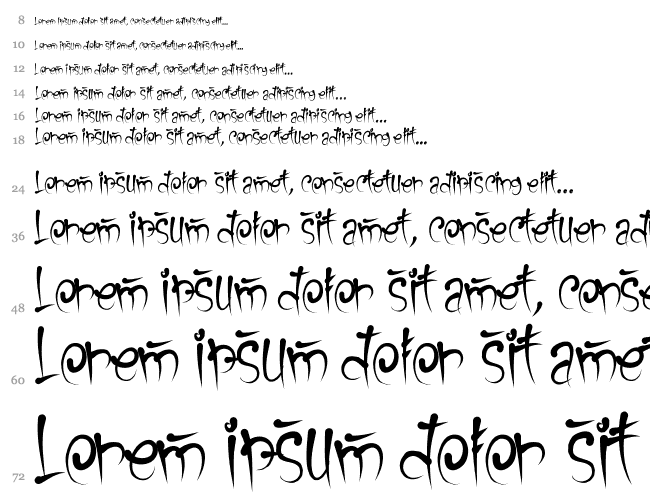 8 Lorem ipsum dolor sit amet, consectetuer adipiscing elit...
10 Lorem ipsum dolor sit amet, consectetuer adipiscing elit...
12 Lorem ipsum dolor sit amet, consectetuer adipiscing elit...
14 Lorem ipsum dolor sit amet, consectetuer adipiscing elit...
16 Lorem ipsum dolor sit amet, consectetuer adipiscing elit...
18 Lorem ipsum dolor sit amet, consectetuer adipiscing elit...
24 Lorem ipsum dolor sit amet, consectetuer adipiscing elit...
36 Lorem ipsum dolor sit amet, consectetuer adi
48 Lorem ipsum dolor sit amet, conse
60 Lorem ipsum dolor sit amet
72 Lorem ipsum dolor sit